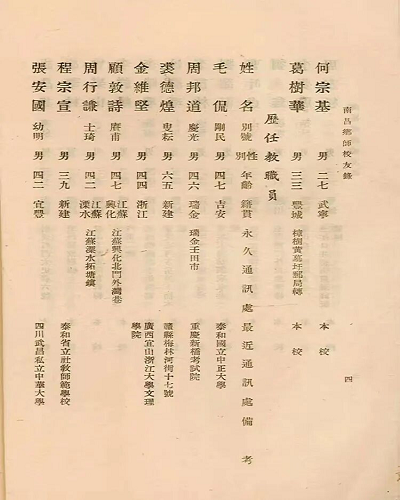 南昌鄉師校友錄
四
何宗基 男 二七 武寧 本校
葛樹華 男 三三 豐城 樟樹黃蔴圩郵局轉 本校
歷任教職員
姓名 別號 性別 年齡 籍貫 永久通訊處 最近通訊處 備考
毛侃 剛民 男 四七 吉安 泰和國立中正大學
周邦道 慶光 男 四六 瑞金 瑞金壬田市 重慶新橋考試院
裘德煌 叟耘 男 六五 新建 贛縣梅林河街十七號
金維堅 男 四四 浙江 廣西宜山浙江大學文理學院
顧敦詩 賡甫 男 四七 江蘇興化 江蘇興化北門外灣巷
周行謙 士琦 男 四二 江蘇溧水 江蘇溧水拓塘鎮
程宗宣 男 三九 新建 泰和省立社教師範學校
張安國 幼明 男 四二 宜豐 四川武昌私立中華大學